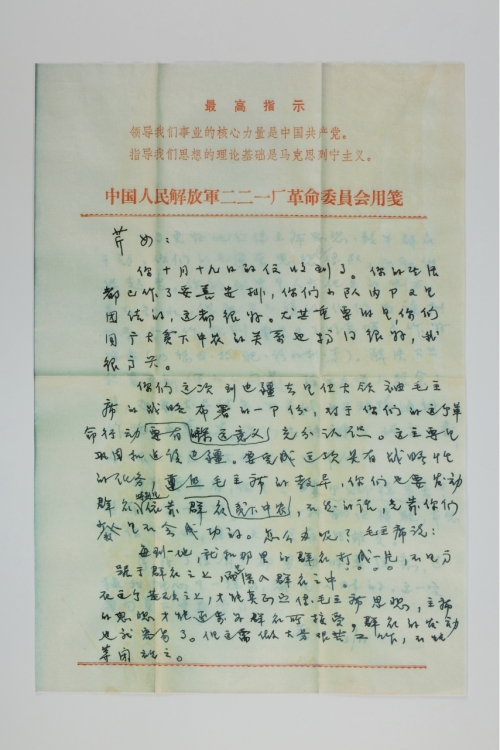 最高指示
领导我们事业的核心力量是中国共产党。
指导我们思想的理论基础是马克思列宁主义。
中国人民解放軍二二一厂革命委員会用笺
芹如：
你十月十九日的信收到了。你的生活
都已作了妥善安排，你们小队内部又是
团结的，这都很好。尤其重要的是，你们
同广大贫下中农的关系也搞得很好，我
很高兴。
你们这次到边疆去是伟大领袖毛主
席的战略布署的一部份，对于你们的这个革
命行动要有充分认识。这主要是
巩固和建设边疆。要完成这项具有战略性
的任务，遵照毛主席的教导，你们也要发动
群众，依靠群众贫下中农，不然的话，光靠你们
是不会成功的。怎么办呢？毛主席说：
每到一地，就和那里的群众打成一片，不是高
踞于群众之上，而是深入群众之中。
在这个基础上，才能真正宣传毛主席思想，主席
的思想才能逐步为群众所接受，群众的发动
也就容易了。但这需做大量艰苦工作，不能
等闲视之。